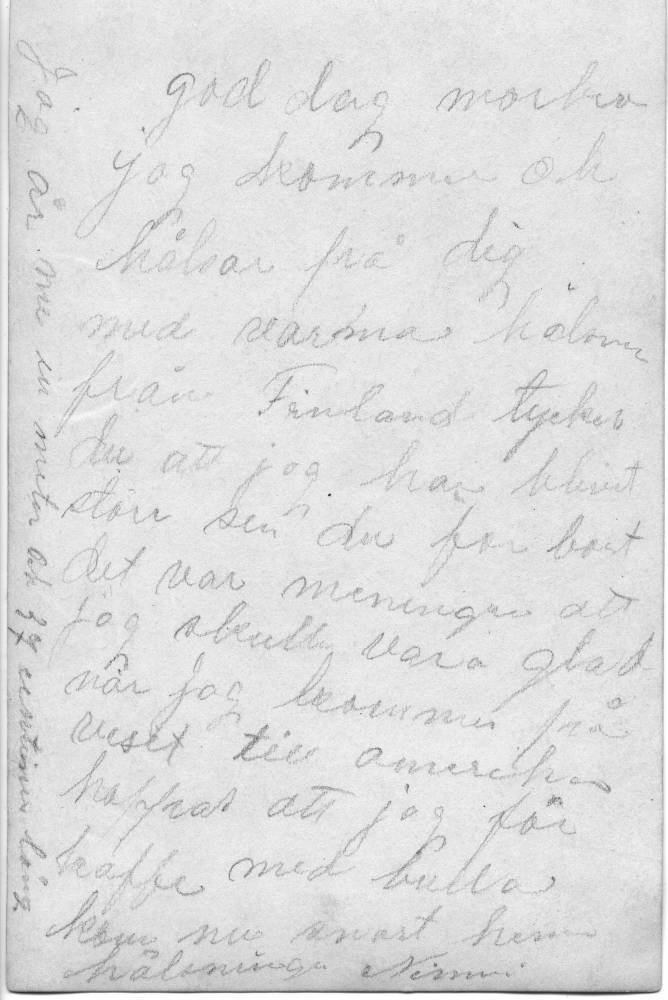 god dag morbro
jag kommer ok
hälsar på dig
med varma hälsnin
från Finland tycker
du att jag har blivit
störr sen du for bort
det var meningen att
jag skulle vara glad
när jag kommer på
visit till amerika
hoppas att jag får
kaffe med bulla
kom nu snart hem
hälsninga
Jag är nu en meter ok 27 centimer lång